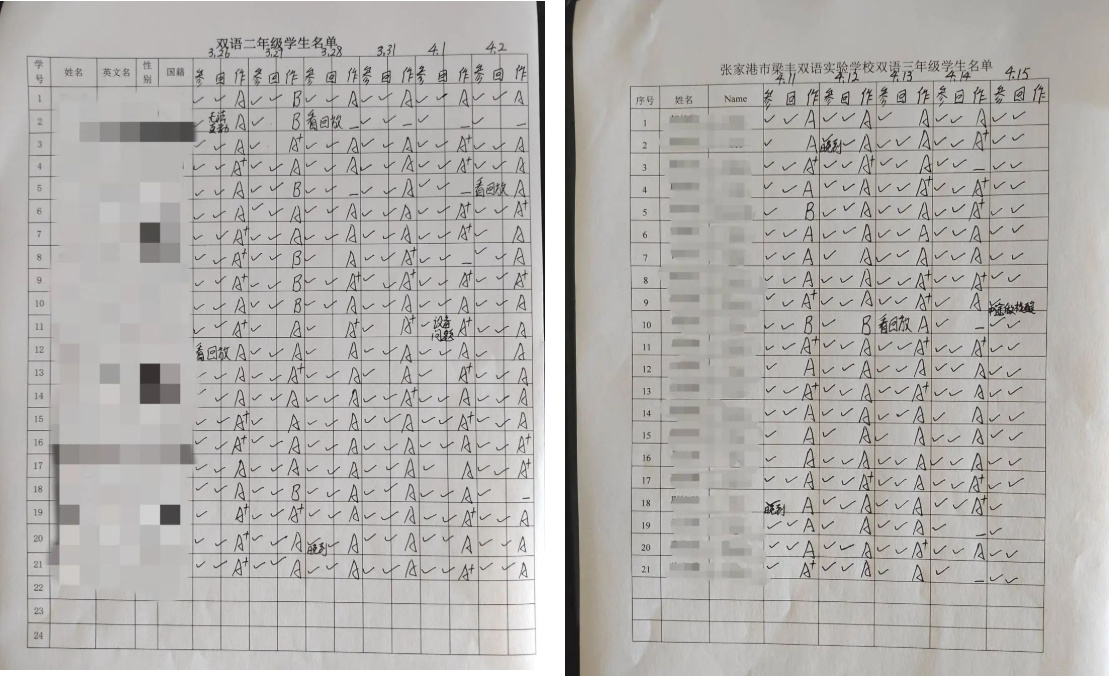 双语二年级学生名单
3.26 3.27 3.28 3.31 4.1 4.2
学号 姓名 英文名 性别 国籍 参 回 作 参 回 作 参 回 作 参 回 作 参 回 作 参 回 作
1 ✓ ✓ A ✓ ✓ B ✓ ✓ A ✓ ✓ A ✓ ✓ A ✓ ✓ A
2 ✓ A B 看回放 – ✓ ✓ – ✓ – ✓ –
3 ✓ ✓ A ✓ A⁺ ✓ ✓ A ✓ ✓ A ✓ ✓ A⁺ ✓ ✓ A
4 ✓ ✓ A⁺ ✓ ✓ A ✓ ✓ A ✓ ✓ A ✓ ✓ A⁺ ✓ ✓ A
5 ✓ ✓ A ✓ ✓ B ✓ ✓ – ✓ ✓ A ✓ ✓ – 看回放 A
6 ✓ ✓ A ✓ ✓ A ✓ ✓ A ✓ ✓ A ✓ ✓ A⁺ ✓ ✓ A⁺
7 ✓ ✓ A⁺ ✓ ✓ A ✓ ✓ A ✓ ✓ A ✓ ✓ A⁺ ✓ A
8 ✓ ✓ A⁺ ✓ ✓ B ✓ A ✓ ✓ A⁺ ✓ ✓ – ✓ ✓ A
9 ✓ ✓ A⁺ ✓ ✓ B ✓ ✓ A⁺ ✓ A⁺ ✓ ✓ A⁺ ✓ ✓ A⁺
10 ✓ ✓ A ✓ ✓ B ✓ ✓ A ✓ ✓ A ✓ ✓ A ✓ ✓ A
11 ✓ ✓ A⁺ ✓ A ✓ A⁺ ✓ A⁺ ✓ 设备问题 A⁺ ✓ A
12 看回放 A ✓ ✓ A ✓ A ✓ ✓ A ✓ ✓ A ✓ A
13 ✓ ✓ A ✓ ✓ A⁺ ✓ ✓ A ✓ ✓ A⁺ ✓ A⁺ ✓ ✓ A
14 ✓ ✓ A⁺ ✓ ✓ A ✓ ✓ A ✓ ✓ A⁺ ✓ ✓ A ✓ ✓ A
15 ✓ ✓ A⁺ ✓ A ✓ ✓ A ✓ ✓ A ✓ ✓ A ✓ ✓ A⁺
16 ✓ ✓ A⁺ ✓ ✓ A ✓ ✓ A ✓ ✓ A ✓ ✓ A ✓ ✓ A⁺
17 ✓ ✓ A ✓ ✓ A ✓ ✓ A ✓ ✓ A ✓ A ✓ ✓ A⁺
18 ✓ ✓ A ✓ ✓ B ✓ ✓ A ✓ ✓ A ✓ ✓ A ✓ –
19 ✓ A⁺ ✓ ✓ A⁺ ✓ ✓ A ✓ ✓ A ✓ ✓ A⁺ ✓ ✓ A
20 ✓ ✓ A⁺ ✓ ✓ A 晚到 ✓ A ✓ ✓ A ✓ ✓ A ✓ ✓ A
21 ✓ ✓ A⁺ ✓ ✓ A ✓ ✓ A ✓ ✓ A⁺ ✓ ✓ A⁺ ✓ ✓ A
22
23
24
张家港市梁丰双语实验学校双语三年级学生名单
4.11 4.12 4.13 4.14 4.15
序号 姓名 Name 参 回 作 参 回 作 参 回 作 参 回 作 参 回 作
1 ✓ ✓ A ✓ ✓ A ✓ ✓ A ✓ ✓ A ✓ ✓
2 ✓ A 晚到 ✓ A ✓ ✓ A ✓ ✓ A⁺ ✓ ✓
3 ✓ ✓ A⁺ ✓ ✓ A⁺ ✓ ✓ A ✓ – ✓ ✓
4 ✓ ✓ A ✓ ✓ A ✓ ✓ A⁺ ✓ ✓ A⁺ ✓ ✓
5 ✓ B ✓ ✓ A ✓ ✓ A ✓ ✓ A⁺ ✓ ✓
6 ✓ ✓ A ✓ ✓ A ✓ ✓ A ✓ ✓ A ✓ ✓
7 ✓ ✓ A ✓ ✓ A ✓ ✓ A ✓ ✓ A ✓ ✓
8 ✓ ✓ A ✓ ✓ A ✓ ✓ A⁺ ✓ ✓ A⁺ ✓ ✓
9 ✓ ✓ A⁺ ✓ ✓ A ✓ ✓ A⁺ ✓ A
10 ✓ ✓ B ✓ B 看回放 A ✓ – ✓ ✓
11 ✓ ✓ A⁺ ✓ ✓ A ✓ ✓ A⁺ ✓ ✓ A ✓ ✓
12 ✓ ✓ A ✓ ✓ A ✓ ✓ A ✓ ✓ A ✓ ✓
13 ✓ ✓ A⁺ ✓ ✓ A ✓ ✓ A⁺ ✓ ✓ A ✓ ✓
14 ✓ ✓ A ✓ ✓ A ✓ ✓ A ✓ A ✓ ✓
15 ✓ A ✓ A ✓ A ✓ ✓ A ✓ ✓
16 ✓ A ✓ ✓ A ✓ ✓ A ✓ ✓ A ✓ ✓
17 ✓ ✓ A ✓ ✓ A⁺ ✓ ✓ A ✓ ✓ A⁺ ✓ ✓
18 晚到 A ✓ ✓ A ✓ ✓ A ✓ ✓ A⁺ ✓
19 ✓ ✓ A ✓ ✓ A ✓ ✓ A ✓ – ✓
20 ✓ ✓ A ✓ ✓ A ✓ ✓ A⁺ ✓ ✓ A ✓ ✓
21 ✓ A⁺ ✓ ✓ A ✓ A ✓ – ✓ ✓